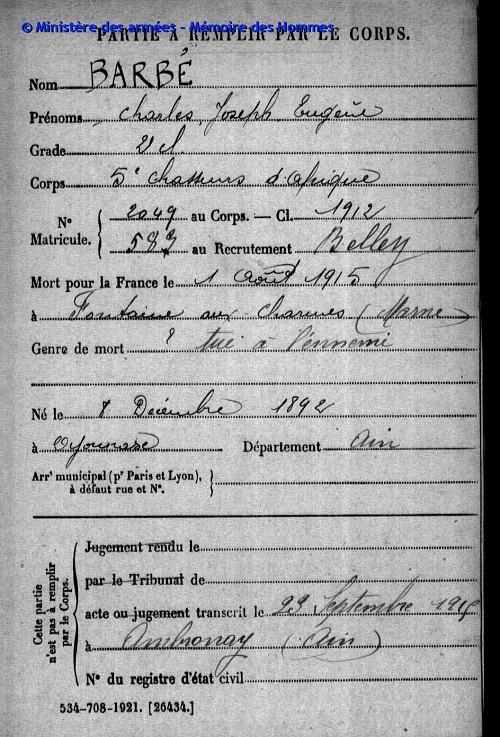 © Ministère des armées - Mémoire des Hommes
PARTIE À REMPLIR PAR LE CORPS.
Nom BARBÉ
Prénoms Charles, Joseph Eugène
Grade 2e cl
Corps 5e Chasseurs d'Afrique
N° Matricule. { 2049 au Corps. — Cl. 1912
583 au Recrutement Belley
Mort pour la France le 1 Août 1915
à Fontaine aux Charmes (Marne)
Genre de mort ? tué à l'ennemi
Né le 8 Décembre 1892
à Oyonnaxe Département Ain
Arrt municipal (pr Paris et Lyon), à défaut rue et N°. }
Cette partie n'est pas à remplir par le Corps.
Jugement rendu le
par le Tribunal de
acte ou jugement transcrit le 29 Septembre
à Ambronay (Ain)
N° du registre d'état civil
534-708-1921. [26434.]